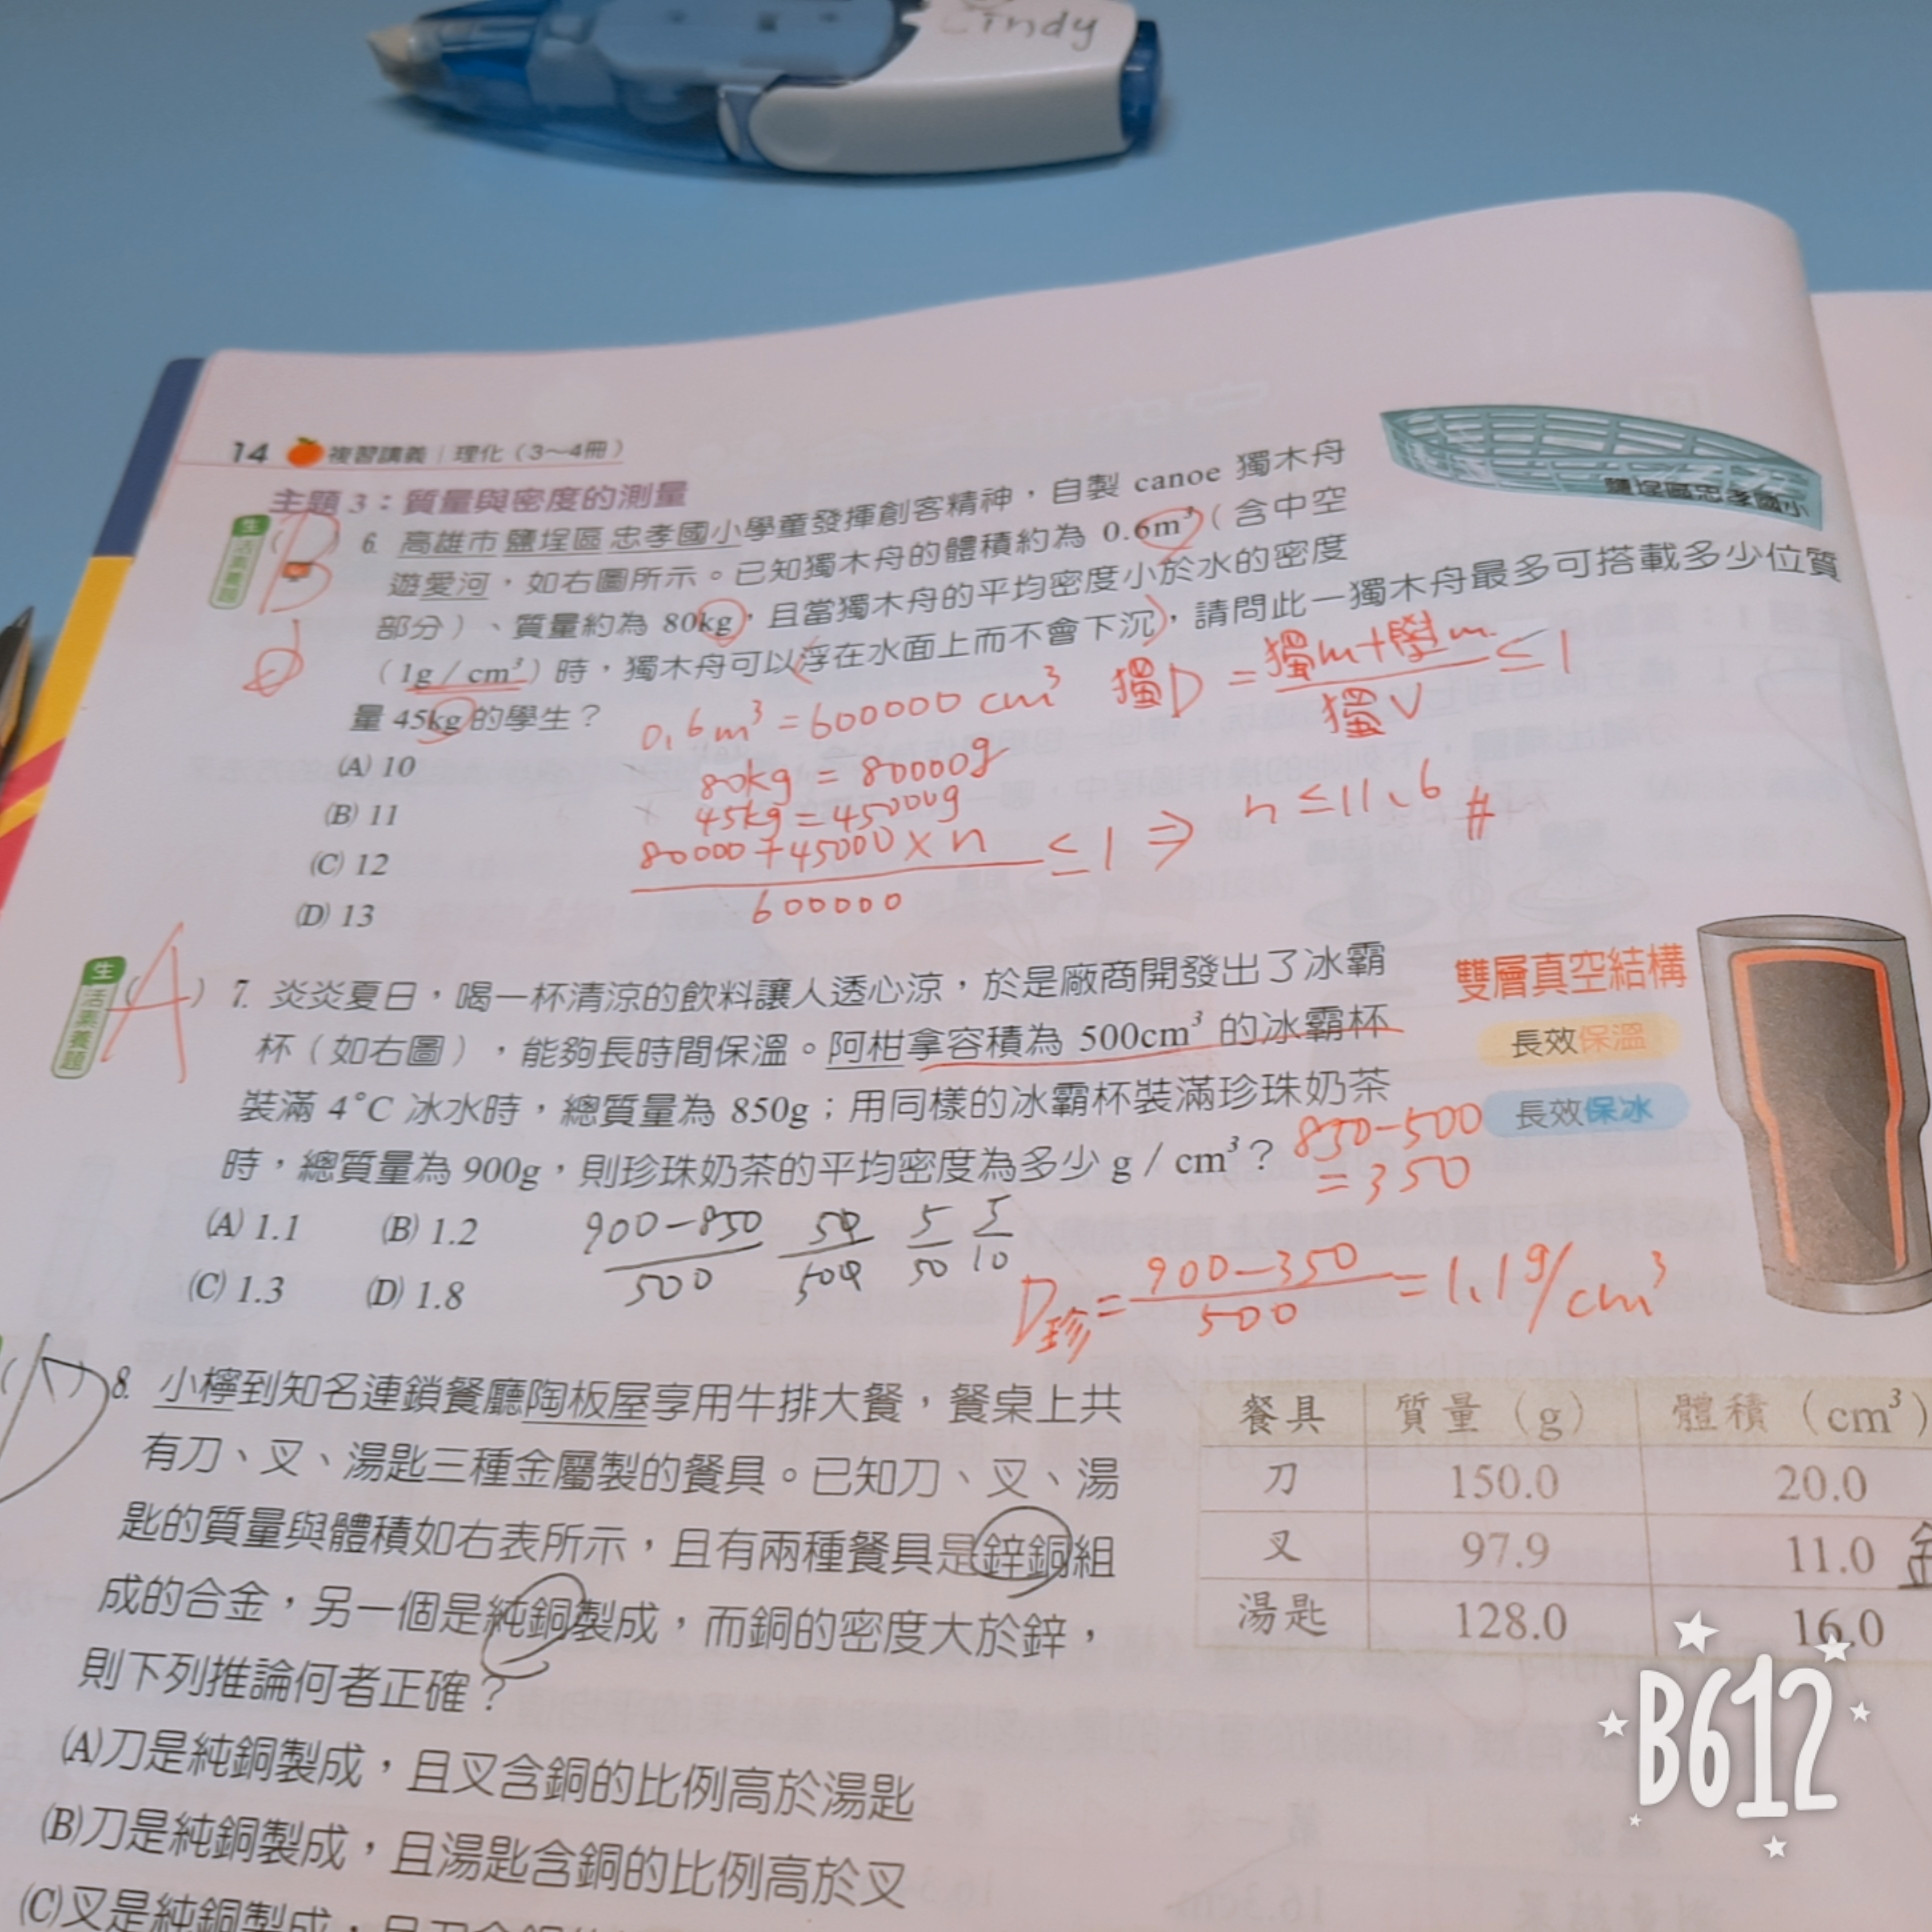 Lindy
14 複習講義｜理化（3～4冊）
主題 3：質量與密度的測量
鹽埕區忠孝國小
生活素養題
(B) 6. 高雄市鹽埕區忠孝國小學童發揮創客精神，自製 canoe 獨木舟
遊愛河，如右圖所示。已知獨木舟的體積約為 0.6m³（含中空
部分）、質量約為 80kg，且當獨木舟的平均密度小於水的密度
（1g／cm³）時，獨木舟可以浮在水面上而不會下沉，請問此一獨木舟最多可搭載多少位質
量 45kg 的學生？
(A) 10
(B) 11
(C) 12
(D) 13
0.6m³=600000 cm³
獨D = 獨m+學m / 獨V ≤1
80kg = 80000g
45kg=45000g
80000+45000×n / 600000 ≤1 ⇒ n≤11.6 #
生活素養題
(A) 7. 炎炎夏日，喝一杯清涼的飲料讓人透心涼，於是廠商開發出了冰霸
杯（如右圖），能夠長時間保溫。阿柑拿容積為 500cm³ 的冰霸杯
裝滿 4°C 冰水時，總質量為 850g；用同樣的冰霸杯裝滿珍珠奶茶
時，總質量為 900g，則珍珠奶茶的平均密度為多少 g／cm³？
(A) 1.1 (B) 1.2
(C) 1.3 (D) 1.8
雙層真空結構
長效保溫
長效保冰
850-500
=350
900-850 / 500 50 / 500 5 / 50 5 / 10
D珍= 900-350 / 500 =1.1g/cm³
8. 小檸到知名連鎖餐廳陶板屋享用牛排大餐，餐桌上共
有刀、叉、湯匙三種金屬製的餐具。已知刀、叉、湯
匙的質量與體積如右表所示，且有兩種餐具是鋅銅組
成的合金，另一個是純銅製成，而銅的密度大於鋅，
則下列推論何者正確？
(A)刀是純銅製成，且叉含銅的比例高於湯匙
(B)刀是純銅製成，且湯匙含銅的比例高於叉
(C)叉是純銅製成，且刀含銅的
餐具 質量（g） 體積（cm³）
刀 150.0 20.0
叉 97.9 11.0
湯匙 128.0 16.0
B612